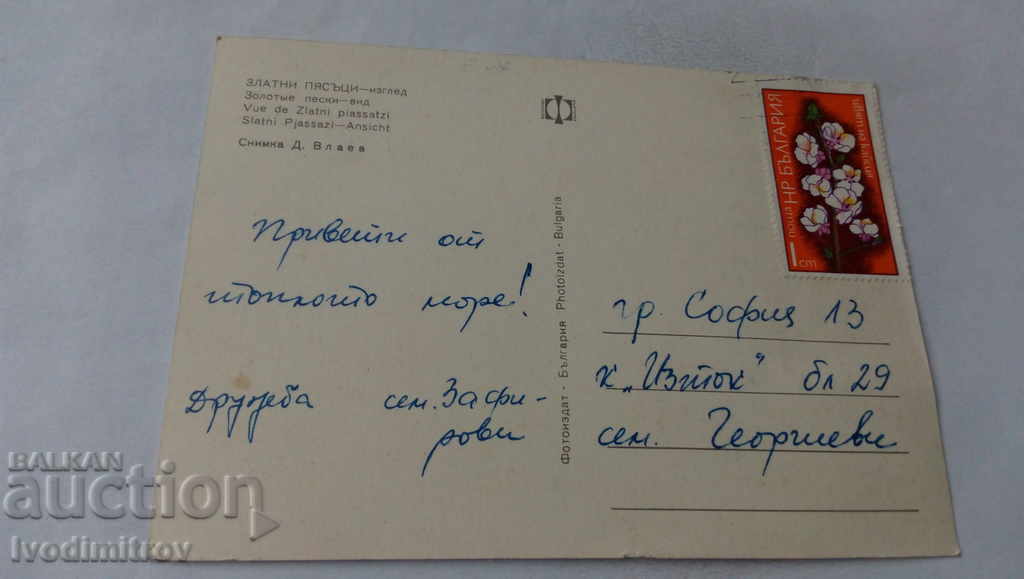 ЗЛАТНИ ПЯСЪЦИ—изглед
Золотые пески—вид
Vue de Zlatni piassatzi
Slatni Pjassazi—Ansicht
Снимка Д. Влаев
Привети от
топлото море!
Дружба сем. Зафи-
рови
Фотоиздат - България Photoizdat - Bulgaria
поща НР БЪЛГАРИЯ
1 cm
гр. София 13
к „Изток" бл 29
сем. Георгиеви
BALKAN
auction
Ivodimitrov